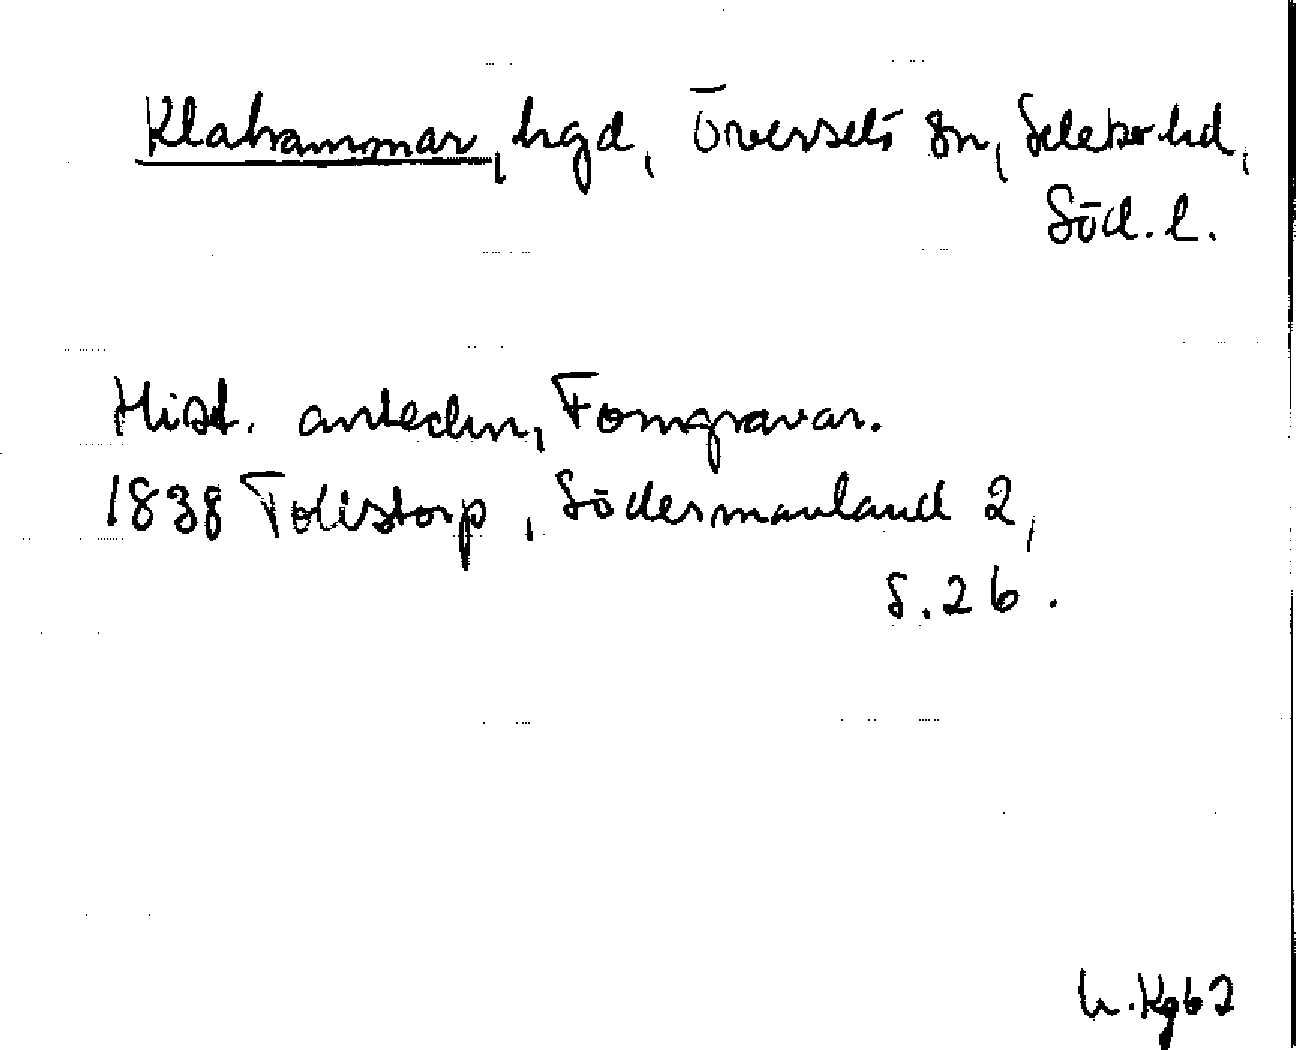 Klahammar, hgd, Överselö sn, Selebo hd,
Söd. l.
Hist. anteckn, Forngravar.
1838 Tollstorp, Södermanland 2,
s. 26.
h. Kg62